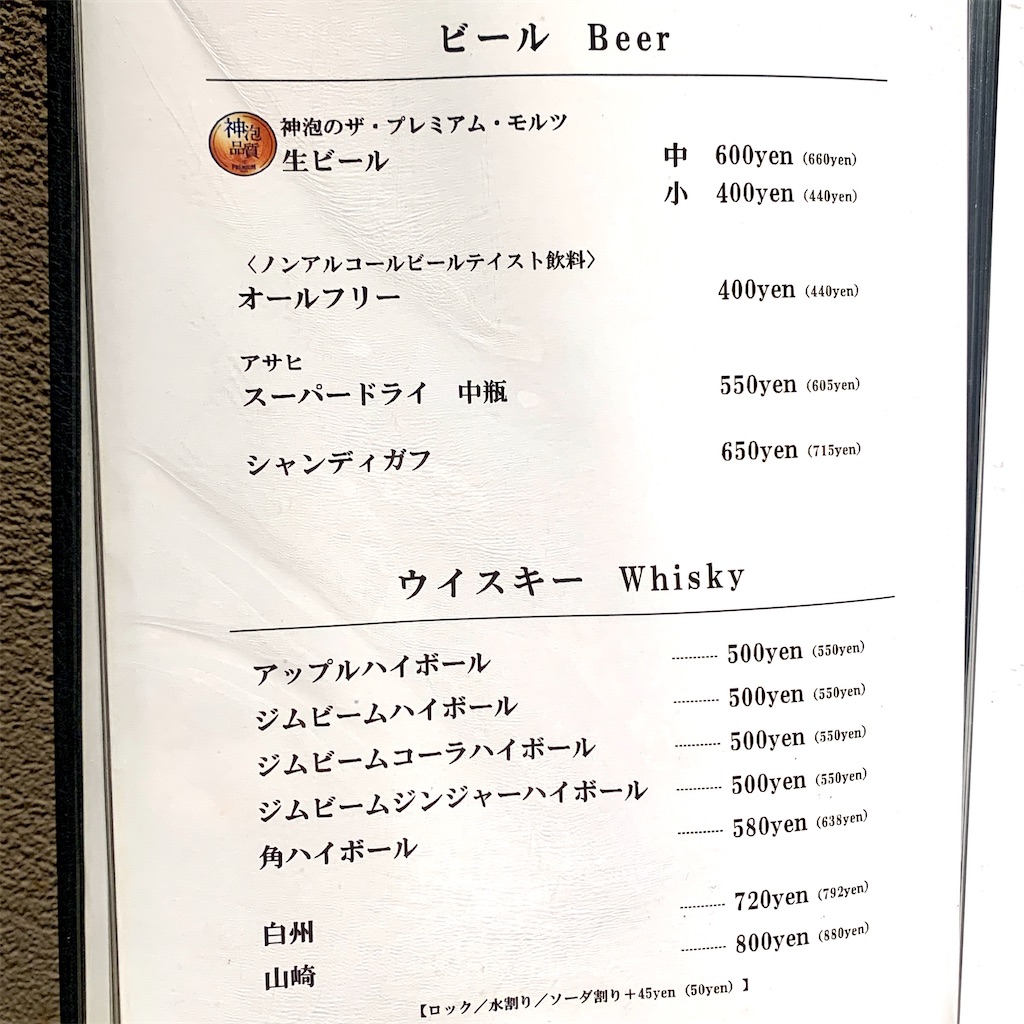 ビール Beer
神泡品質 PREMIUM
神泡のザ・プレミアム・モルツ
生ビール 中 600yen (660yen)
小 400yen (440yen)
〈ノンアルコールビールテイスト飲料〉
オールフリー 400yen (440yen)
アサヒ
スーパードライ 中瓶 550yen (605yen)
シャンディガフ 650yen (715yen)
ウイスキー Whisky
アップルハイボール ---------- 500yen (550yen)
ジムビームハイボール ---------- 500yen (550yen)
ジムビームコーラハイボール ---------- 500yen (550yen)
ジムビームジンジャーハイボール ---------- 500yen (550yen)
角ハイボール ---------- 580yen (638yen)
白州 ---------- 720yen (792yen)
山崎 ---------- 800yen (880yen)
【ロック／水割り／ソーダ割り＋45yen (50yen) 】